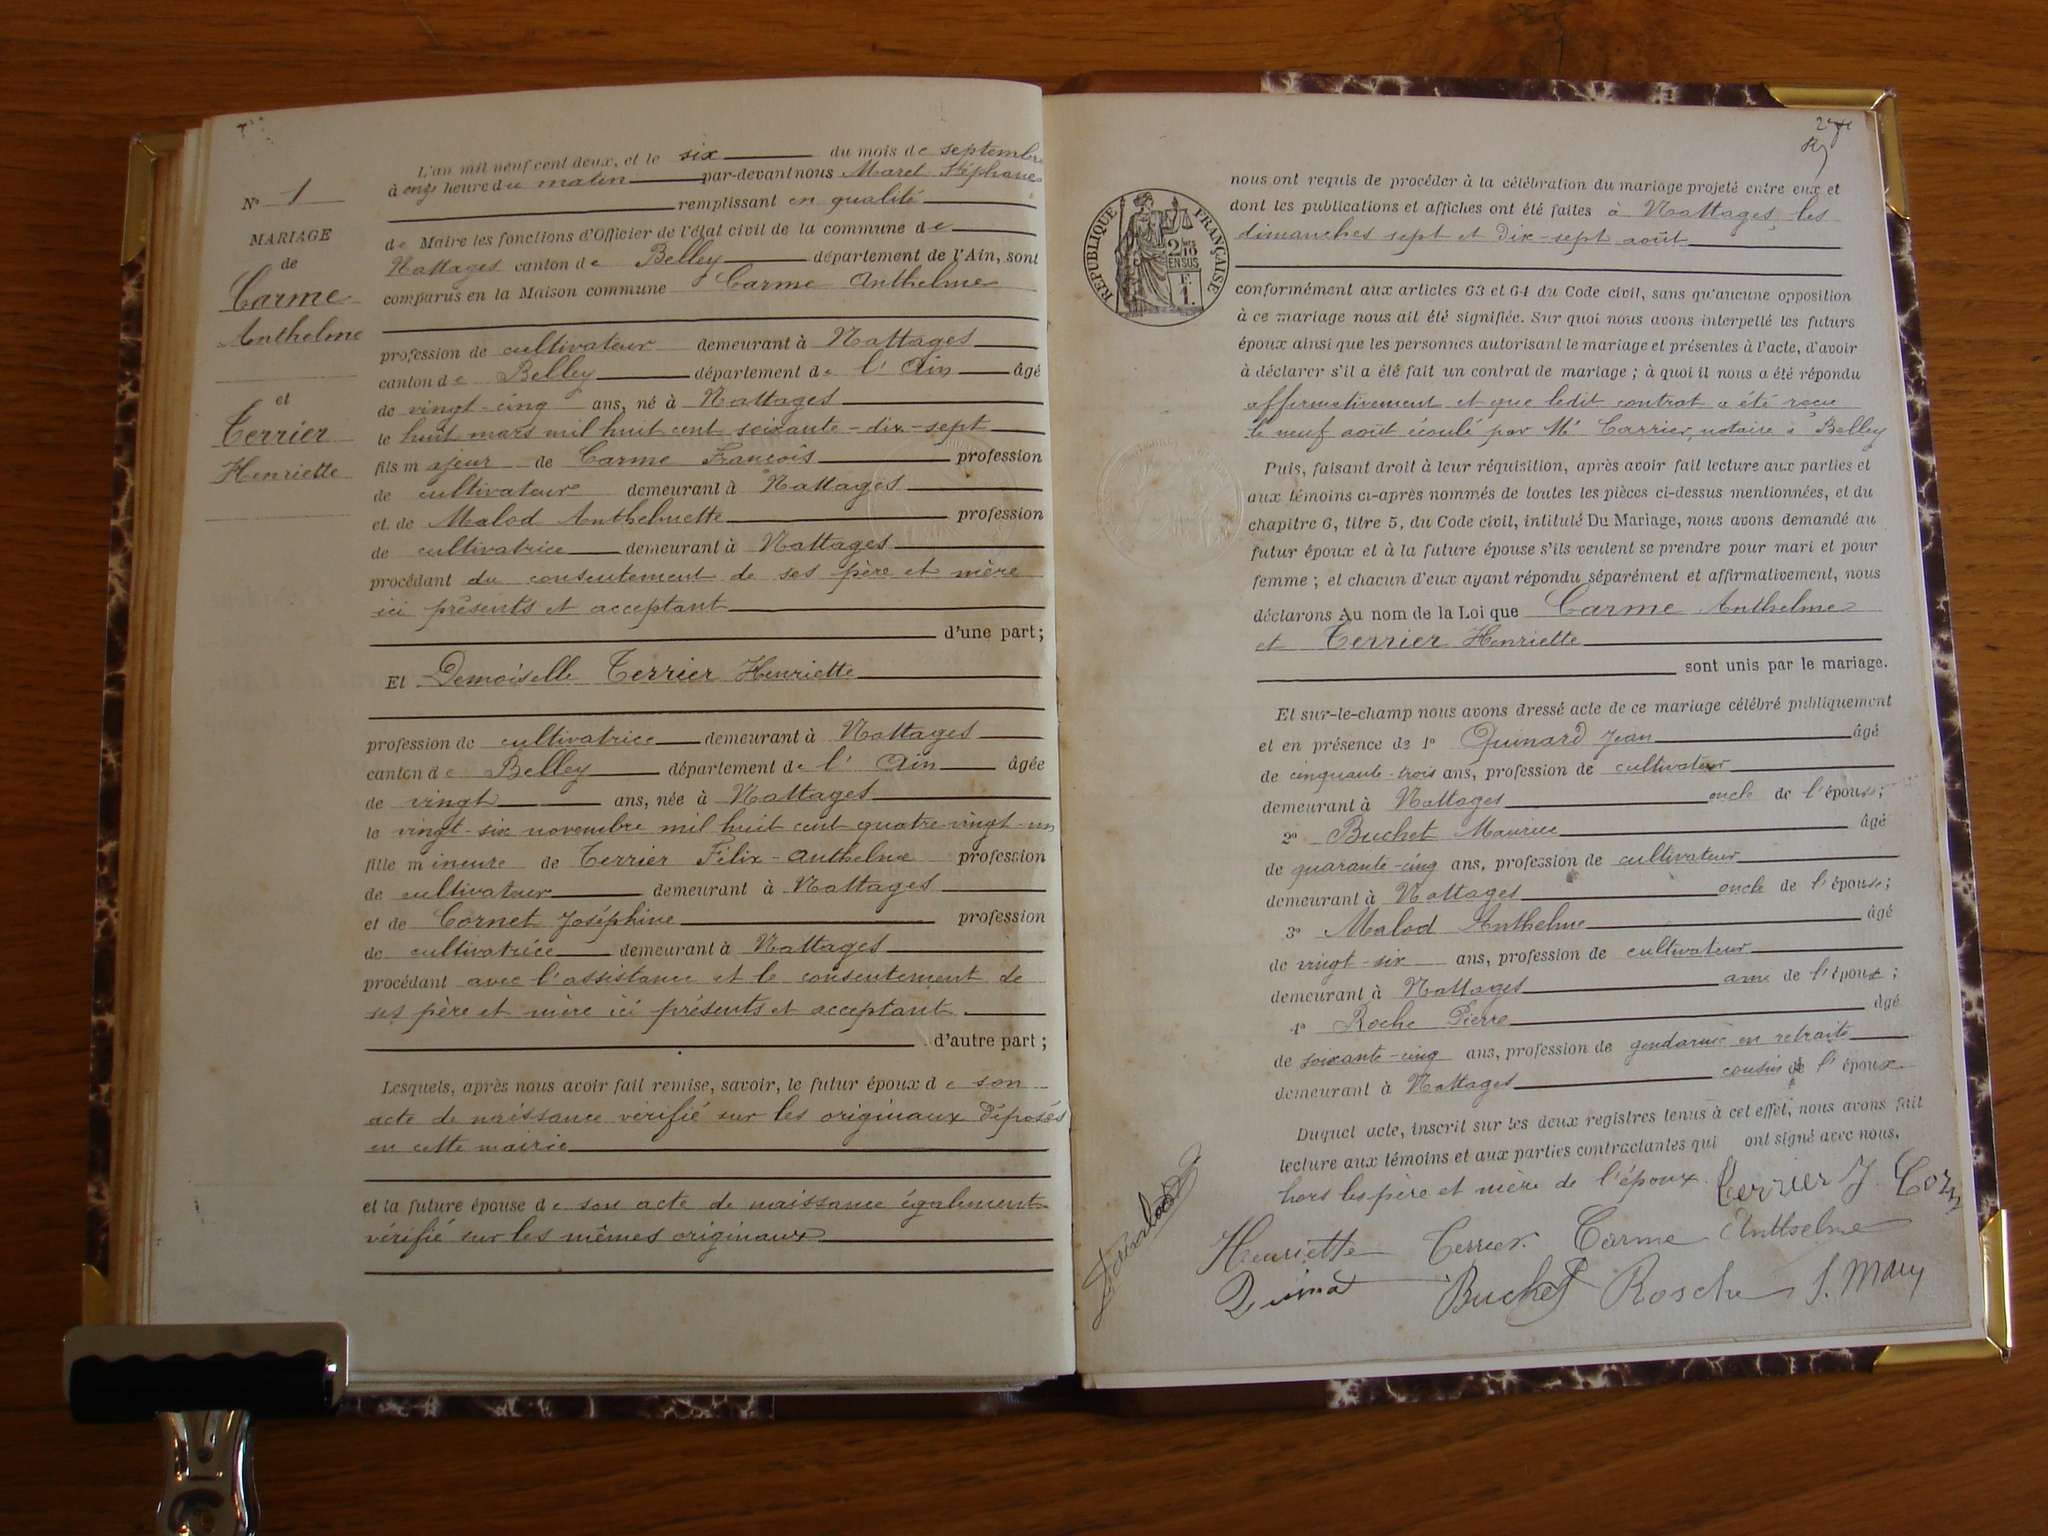 N° 1
MARIAGE
de
Carme
Anthelme
et
Terrier
Henriette
L'an mil neuf cent deux, et le six du mois de septembre
à onze heure du matin par-devant nous Maret Stéphane
remplissant en qualité
de Maire les fonctions d'Officier de l'état civil de la commune de
Nattages canton de Belley département de l'Ain, sont
comparus en la Maison commune Carme Anthelme
profession de cultivateur demeurant à Nattages
canton de Belley département de l'Ain âgé
de vingt-cinq ans, né à Nattages
le huit mars mil huit cent soixante-dix-sept
fils majeur de Carme François profession
de cultivateur demeurant à Nattages
et de Malod Anthelmette profession
de cultivatrice demeurant à Nattages
procédant du consentement de ses père et mère
ici présents et acceptant
d'une part;
Et Demoiselle Terrier Henriette
profession de cultivatrice demeurant à Nattages
canton de Belley département de l'Ain âgée
de vingt ans, née à Nattages
le vingt-six novembre mil huit cent quatre-vingt-un
fille mineure de Terrier Félix-Anthelme profession
de cultivateur demeurant à Nattages
et de Cornet Joséphine profession
de cultivatrice demeurant à Nattages
procédant avec l'assistance et le consentement de
ses père et mère ici présents et acceptant
d'autre part;
Lesquels, après nous avoir fait remise, savoir, le futur époux de son
acte de naissance vérifié sur les originaux déposés
en cette mairie
et la future épouse de son acte de naissance également
vérifié sur les mêmes originaux
RÉPUBLIQUE FRANÇAISE
2/10
EN SUS
F
1.
nous ont requis de procéder à la célébration du mariage projeté entre eux et
dont les publications et affiches ont été faites à Nattages les
dimanches sept et dix-sept août
conformément aux articles 63 et 64 du Code civil, sans qu'aucune opposition
à ce mariage nous ait été signifiée. Sur quoi nous avons interpellé les futurs
époux ainsi que les personnes autorisant le mariage et présentes à l'acte, d'avoir
à déclarer s'il a été fait un contrat de mariage; à quoi il nous a été répondu
affirmativement et que ledit contrat a été reçu
le neuf août écoulé par Me Carrier, notaire à Belley
Puis, faisant droit à leur réquisition, après avoir fait lecture aux parties et
aux témoins ci-après nommés de toutes les pièces ci-dessus mentionnées, et du
chapitre 6, titre 5, du Code civil, intitulé Du Mariage, nous avons demandé au
futur époux et à la future épouse s'ils veulent se prendre pour mari et pour
femme; et chacun d'eux ayant répondu séparément et affirmativement, nous
déclarons Au nom de la Loi que Carme Anthelme
et Terrier Henriette
sont unis par le mariage.
Et sur-le-champ nous avons dressé acte de ce mariage célébré publiquement
et en présence de 1° Quinard Jean âgé
de cinquante-trois ans, profession de cultivateur
demeurant à Nattages oncle de l'épouse;
2° Buchet Maurice âgé
de quarante-cinq ans, profession de cultivateur
demeurant à Nattages oncle de l'épouse;
3° Malod Anthelme âgé
de vingt-six ans, profession de cultivateur
demeurant à Nattages ami de l'époux;
4° Roche Pierre âgé
de soixante-cinq ans, profession de gendarme en retraite
demeurant à Nattages cousin de l'époux
Duquel acte, inscrit sur les deux registres tenus à cet effet, nous avons fait
lecture aux témoins et aux parties contractantes qui ont signé avec nous.
hors les père et mère de l'époux. Terrier J. Corn
Henriette Terrier Carme Anthelme
Buchet Rosche S. Mary